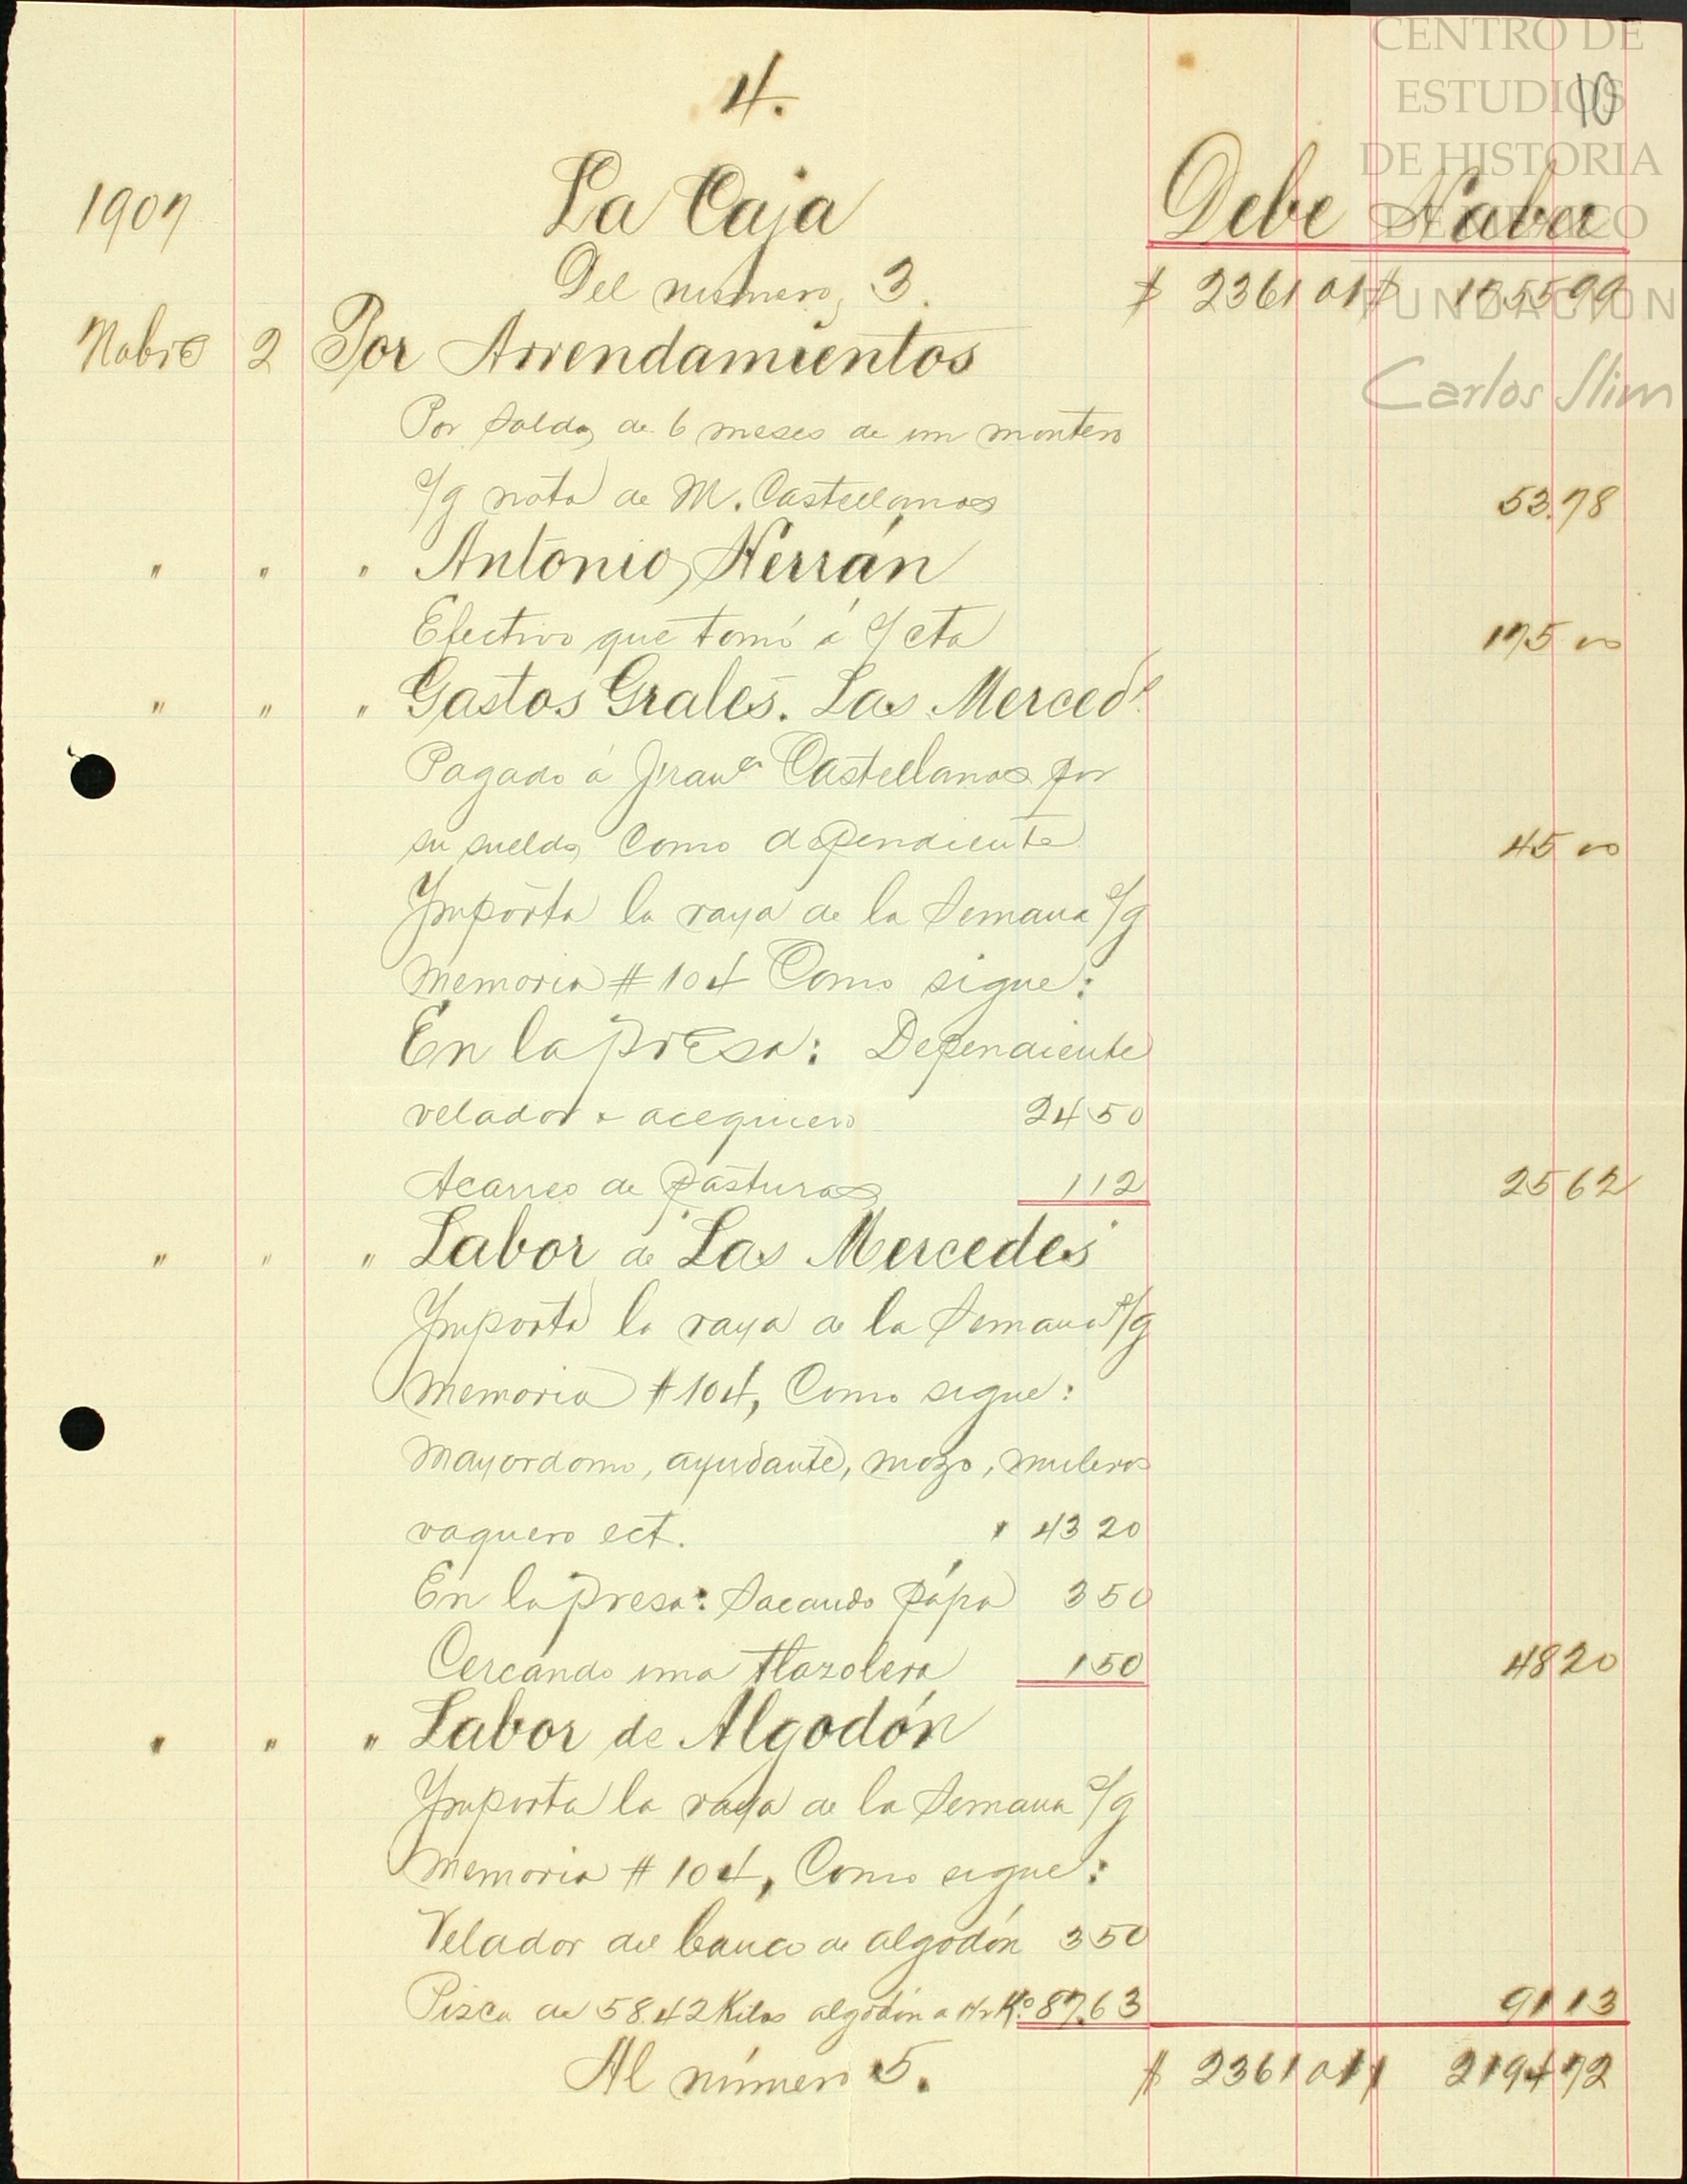 CENTRO DE
ESTUDIOS
DE HISTORIA
DE MÉXICO
FUNDACIÓN
Carlos Slim
10
4.
1907 La Caja Debe Haber
Del número 3. $ 2361 01 $ 1755 99
Nobre 2 Por Arrendamientos
Por saldo de 6 meses de un montero
s/g nota de M. Castellanos 53.78
" " " Antonio Herrán
Efectivo que tomó á s/ cta 175 00
" " " Gastos Grales. Las Merceds
Pagado á Franco Castellanos por
su sueldo como dependiente 45 00
Importa la raya de la semana s/g
memoria # 104 Como sigue:
En la presa: Dependiente
velador & acequiero 24 50
Acarreo de pasturas 1 12 25 62
" " " Labor de Las Mercedes
Importa la raya de la semana s/g
memoria # 104, Como sigue:
Mayordomo, ayudante, mozo, muleros
vaquero ect. " 43 20
En la presa: Sacando papa 3 50
Cercando una tlazolera 1 50 48 20
" " " Labor de Algodón
Importa la raya de la semana s/g
memoria # 104, Como sigue:
Velador del banco de algodón 3 50
Pizca de 58.42 Kilos algodón a Ko. 87.63 91 13
Al número 5. $ 2361 01 2194 72